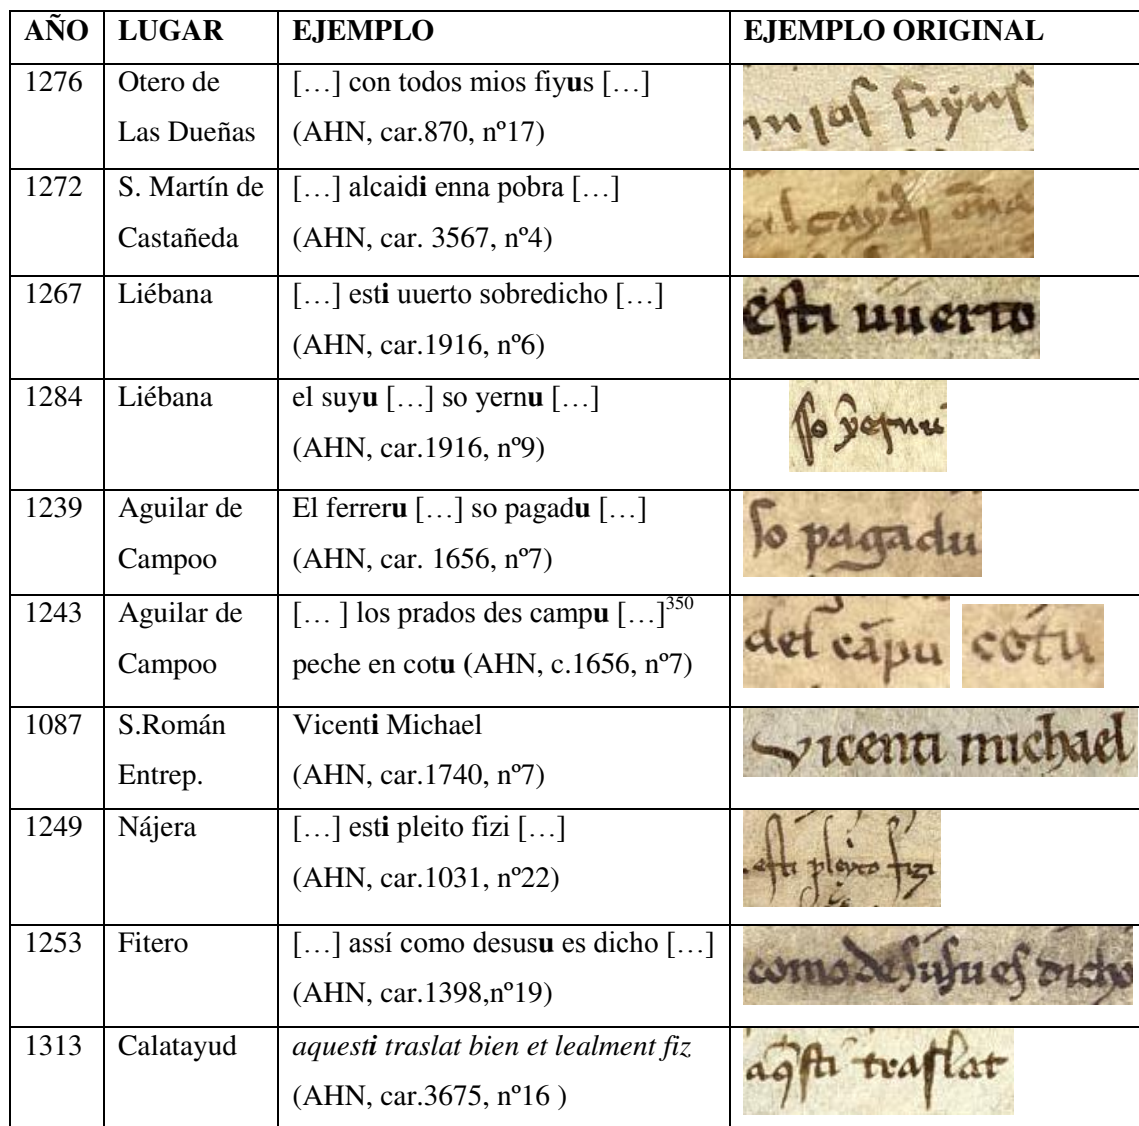 AÑO LUGAR EJEMPLO EJEMPLO ORIGINAL
1276 Otero de […] con todos mios fiyus […]
Las Dueñas (AHN, car.870, nº17)
mios fiyus
1272 S. Martín de […] alcaidi enna pobra […]
Castañeda (AHN, car. 3567, nº4)
alcaydi ēna
1267 Liébana […] esti uuerto sobredicho […]
(AHN, car.1916, nº6)
esti uuerto
1284 Liébana el suyu […] so yernu […]
(AHN, car.1916, nº9)
sso yernu
1239 Aguilar de El ferreru […] so pagadu […]
Campoo (AHN, car. 1656, nº7)
so pagadu
1243 Aguilar de [… ] los prados des campu […]350
Campoo peche en cotu (AHN, c.1656, nº7)
del cāpu cotu
1087 S.Román Vicenti Michael
Entrep. (AHN, car.1740, nº7)
vicenti michael
1249 Nájera […] esti pleito fizi […]
(AHN, car.1031, nº22)
esti pleyto fizi
1253 Fitero […] assí como desusu es dicho […]
(AHN, car.1398,nº19)
como desusu es dicho
1313 Calatayud aquesti traslat bien et lealment fiz
(AHN, car.3675, nº16 )
aq̄sti traslat